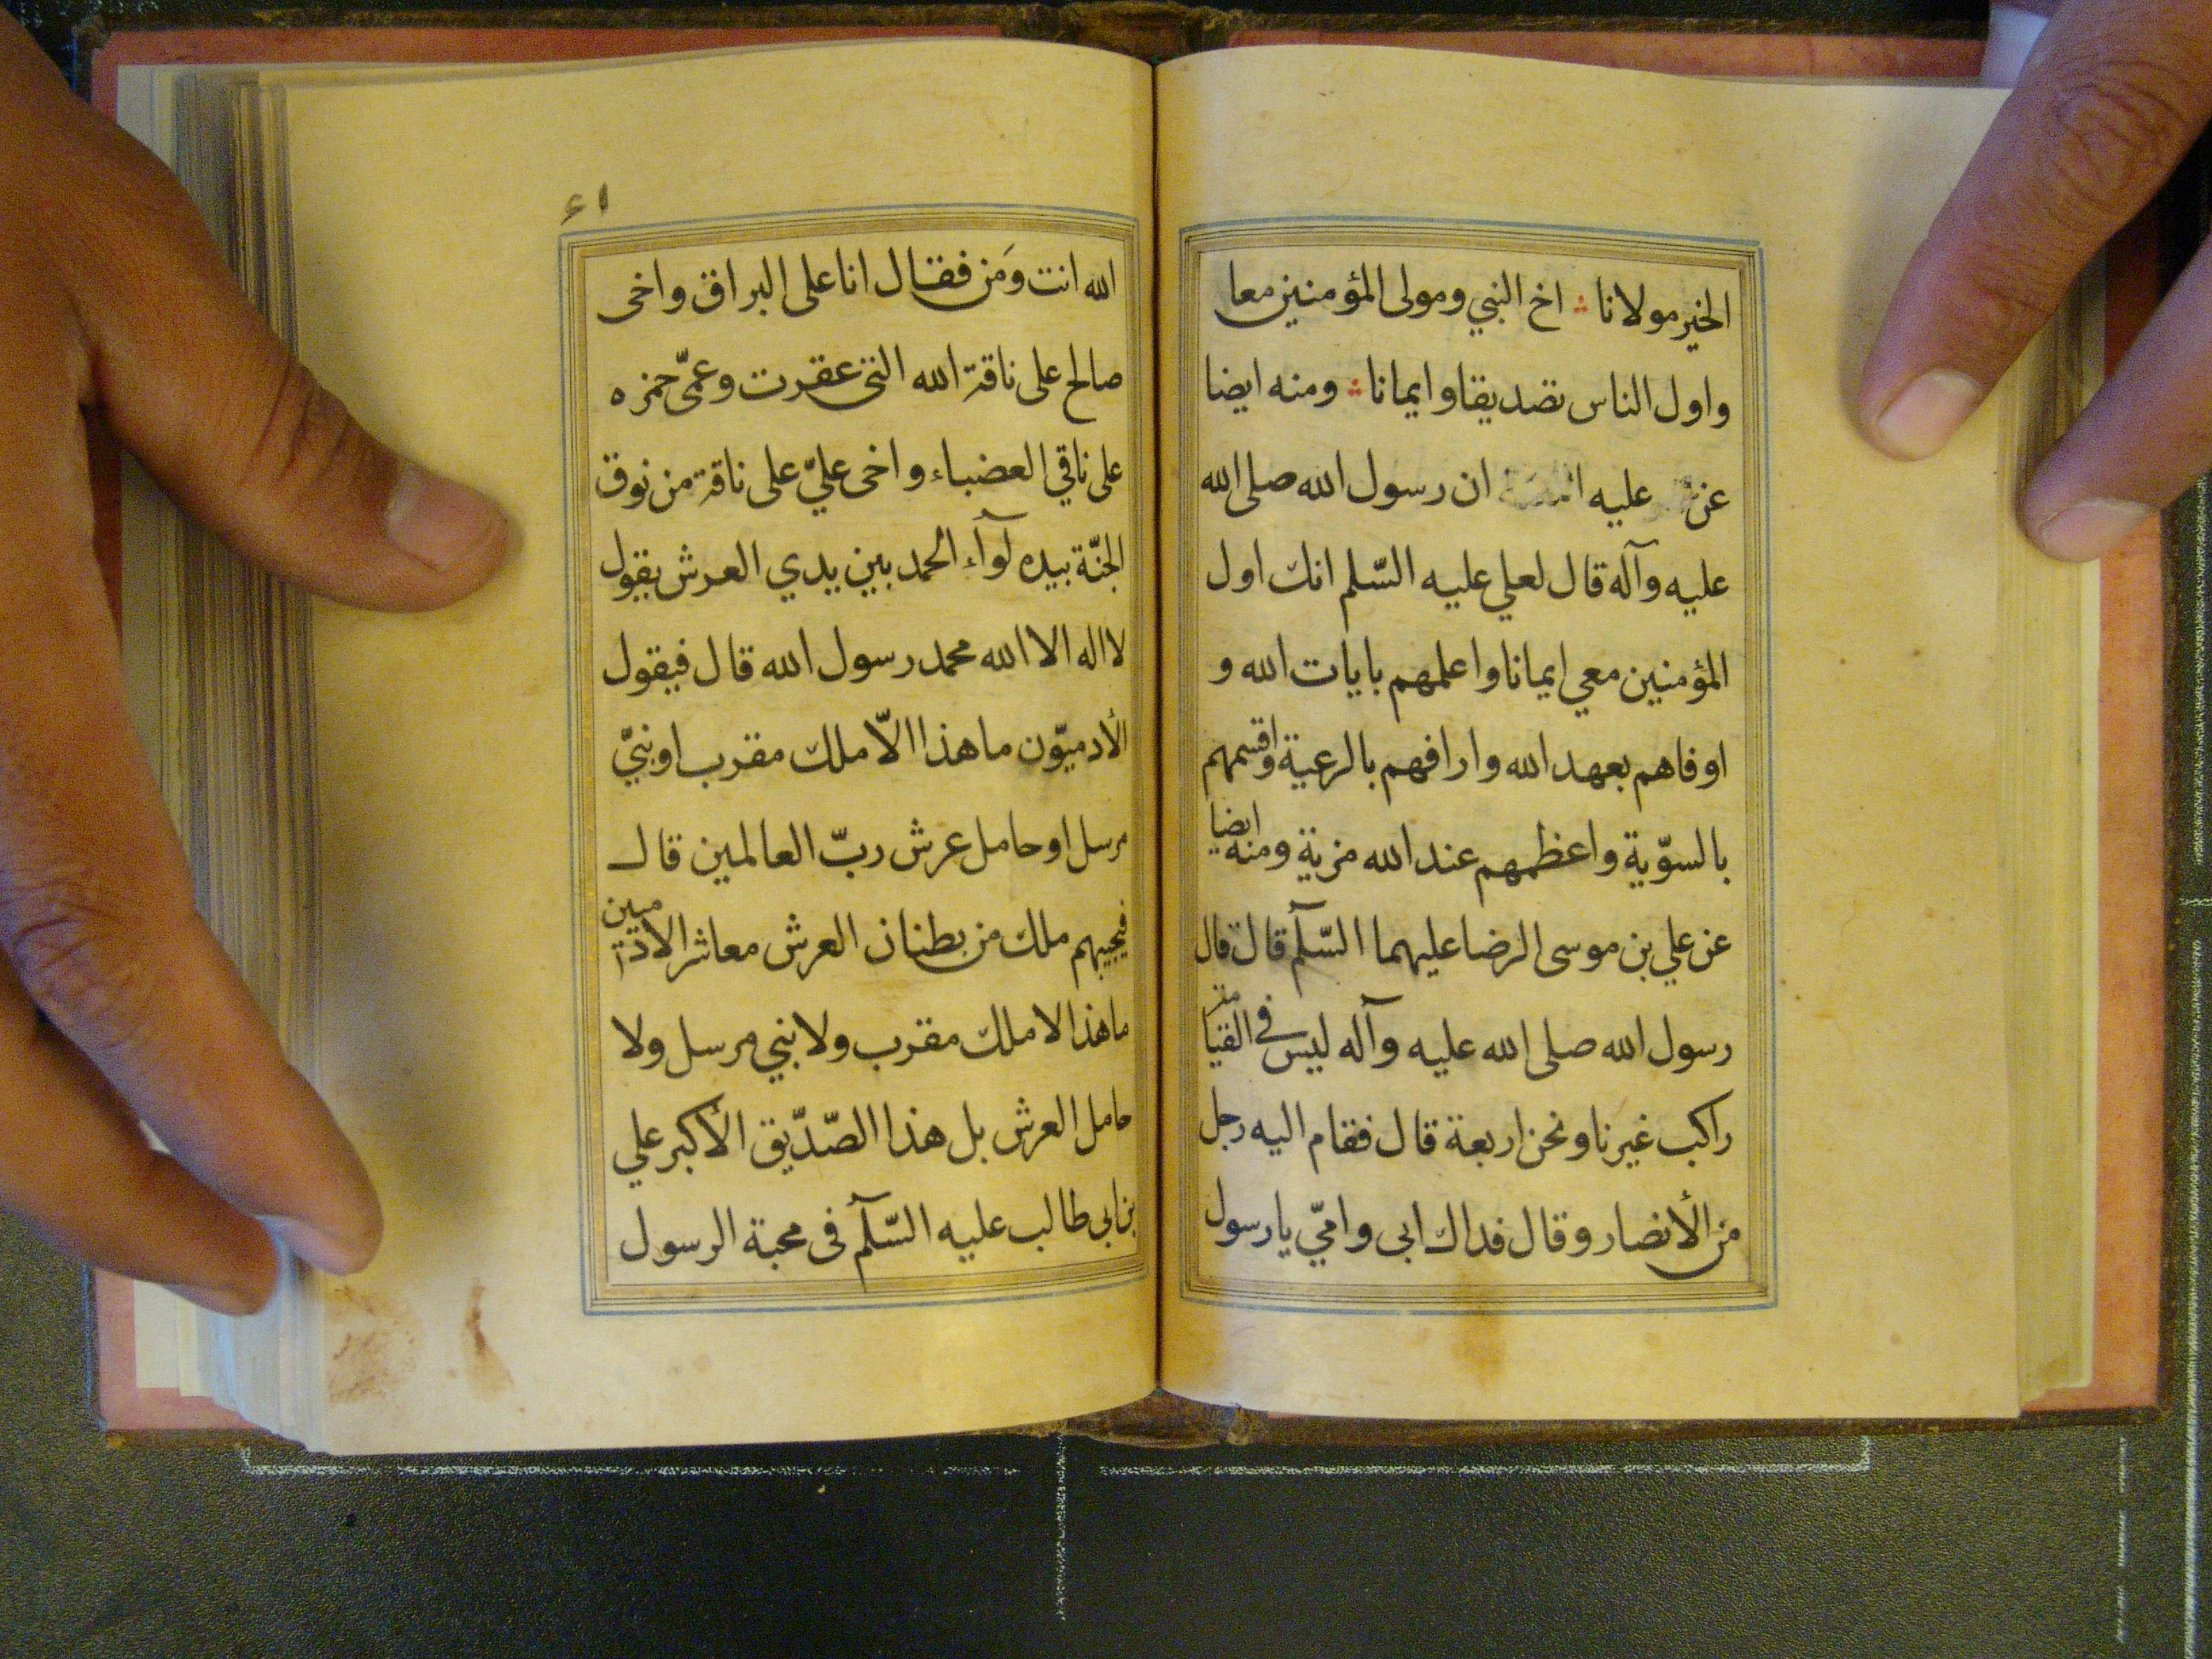 الخير مولانا ؞ اخ النبي ومولى المؤمنين معا
واول الناس تصديقا وايمانا ؞ ومنه ايضا
عن عليه ان رسول الله صلى الله
عليه وآله قال لعلي عليه السّلم انك اول
المؤمنين معي ايمانا واعلمهم بايات الله و
اوفاهم بعهد الله وارافهم بالرعية واقسمهم
بالسوّية واعظمهم عند الله مزية ومنه ايضا
عن علي بن موسى الرضا عليهما السّلم قال قال
رسول الله صلى الله عليه وآله ليس في القيامة
راكب غيرنا ونحن اربعة قال فقام اليه رجل
من الأنصار وقال فداك ابى وامّي يا رسول
٤١
الله انت ومَن فقال انا على البراق واخى
صالح على ناقة الله التى عقرت وعمّى حمزه
على ناقتي العضباء واخى عليّ على ناقة من نوق
الجنّة بيده لوآء الحمد بين يدي العرش يقول
لا اله الا الله محمد رسول الله قال فيقول
الأدميّون ما هذا الاّ ملك مقرب او نبيّ
مرسل او حامل عرش ربّ العالمين قال
فيجيبهم ملك من بطنان العرش معاشر الادميين
ما هذا لا ملك مقرب ولا نبي مرسل ولا
حامل العرش بل هذا الصّدّيق الأكبر علي
بن ابى طالب عليه السّلم فى محبة الرسول